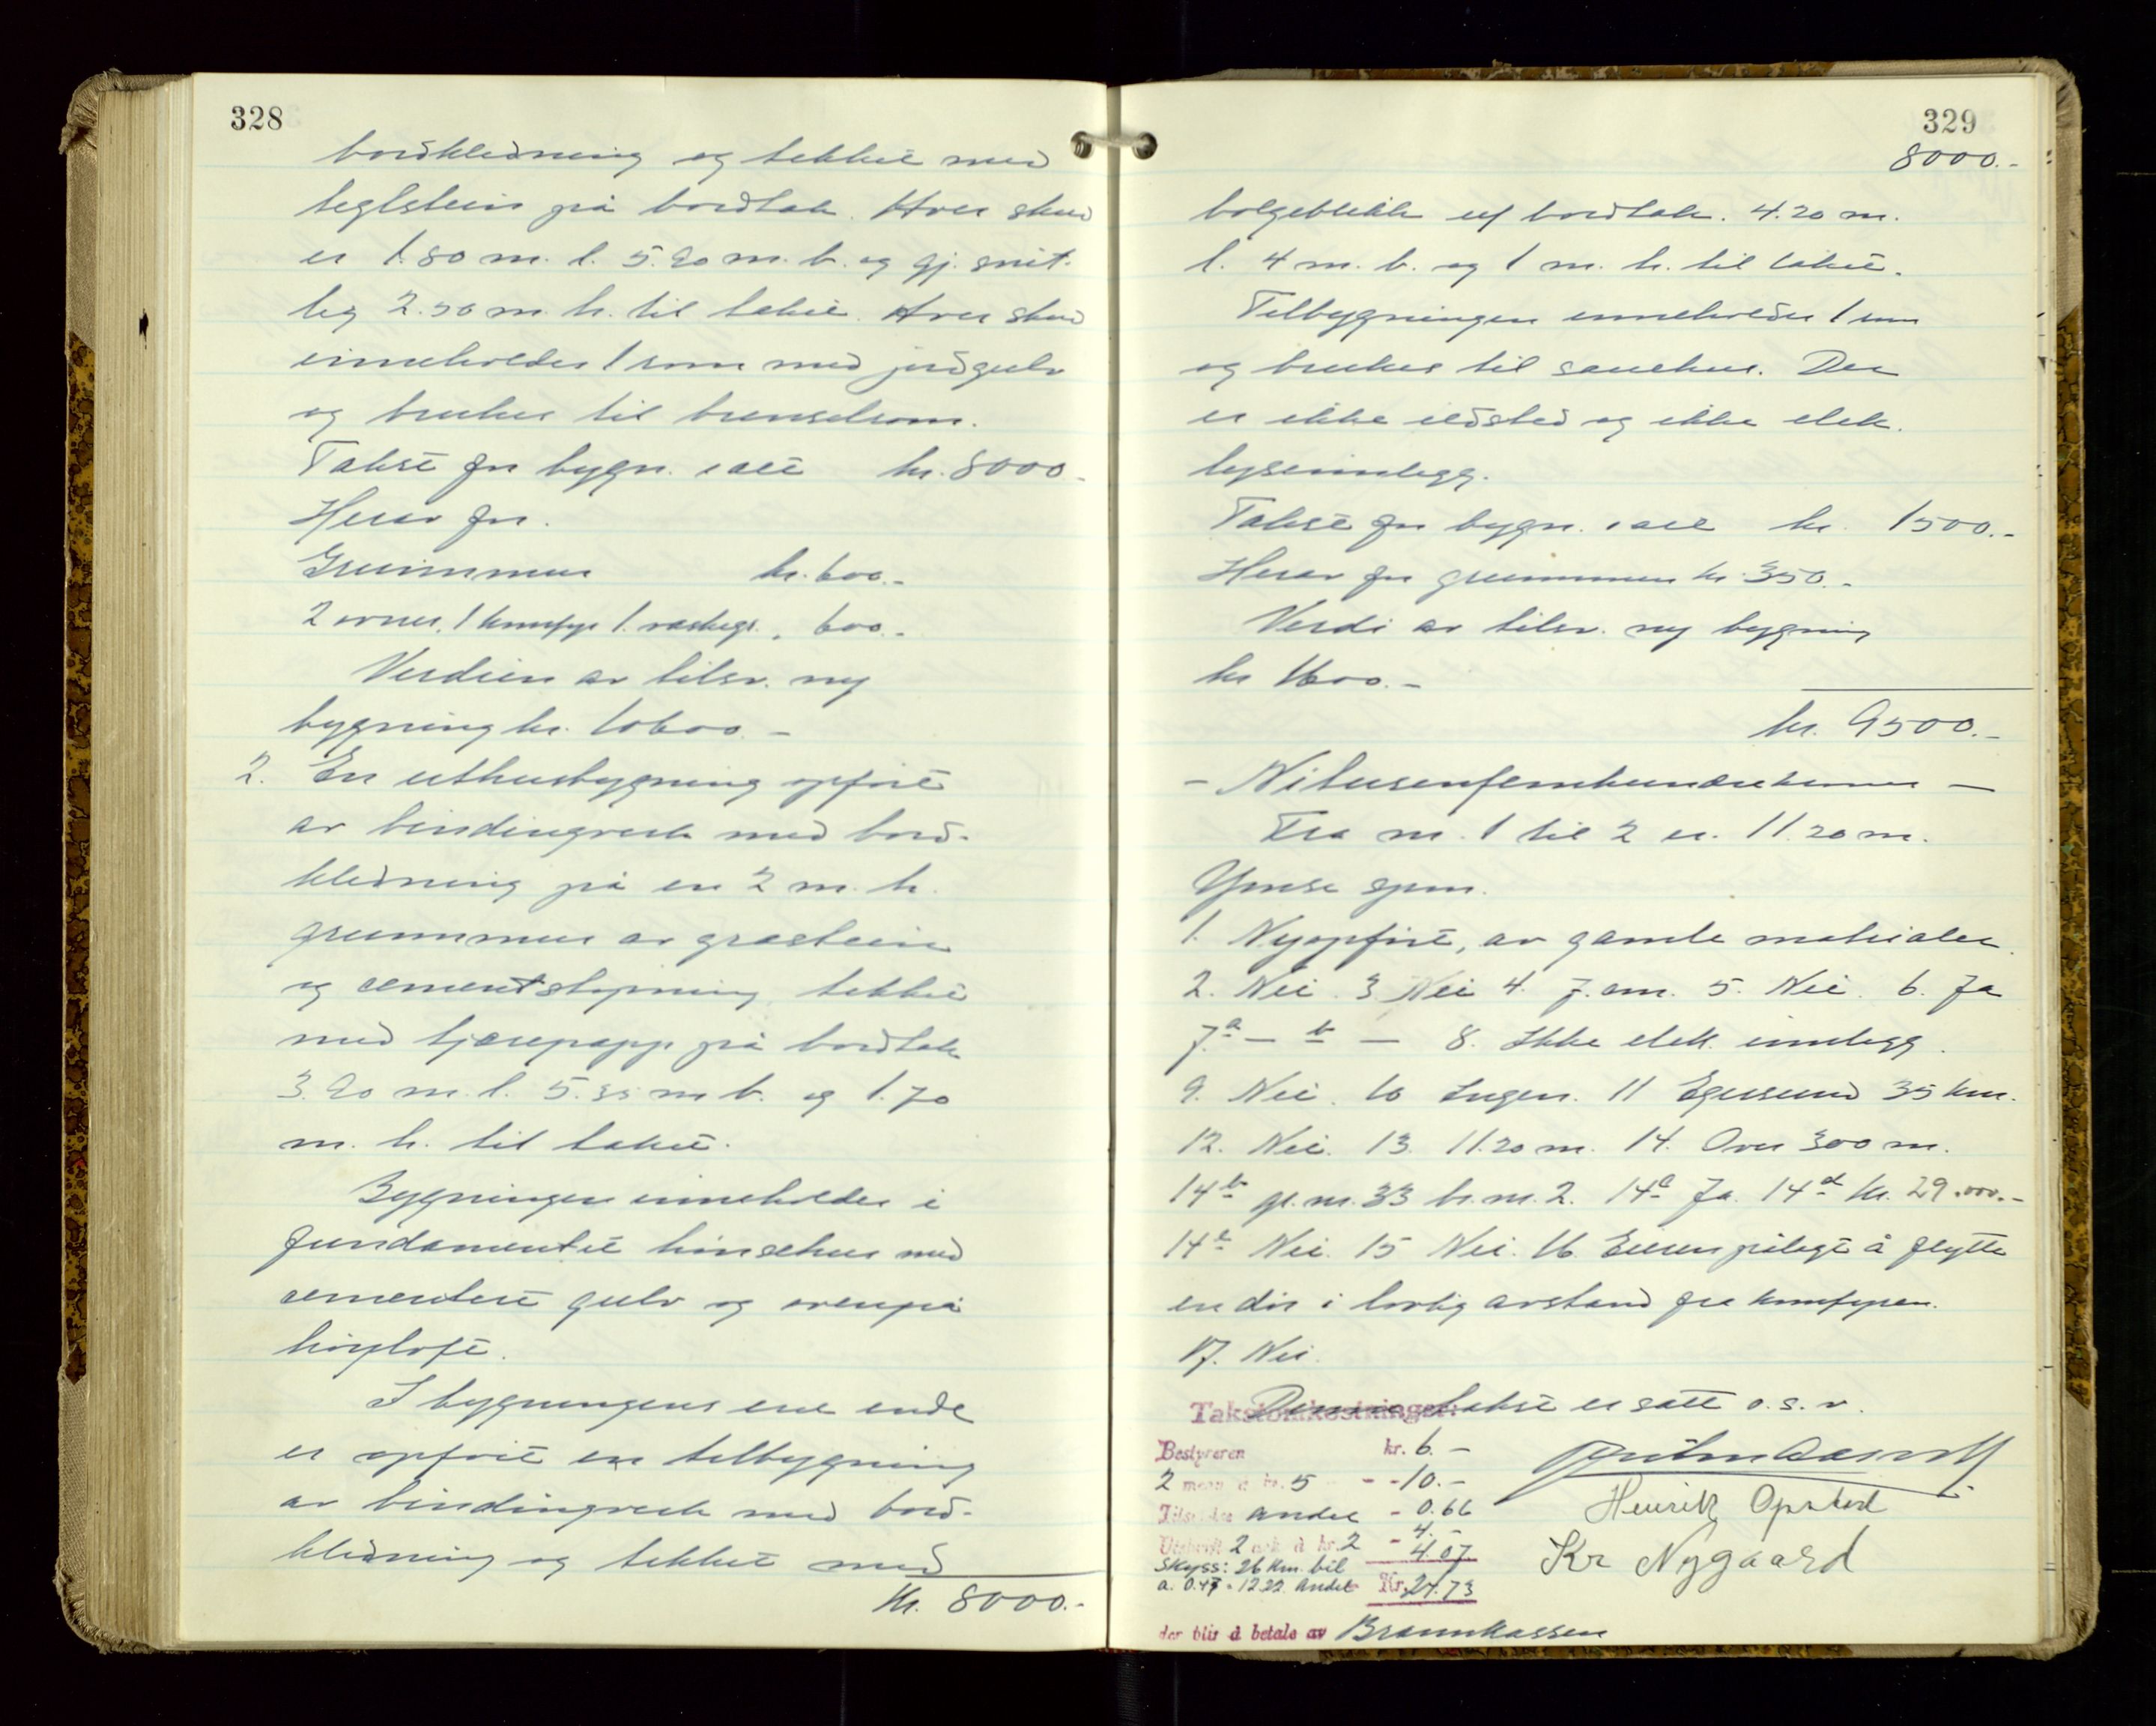 328
bordkledning og tekket med
teglstein på bordtak. Hver skur
er 1.80 m. l. 5.20 m. b. og gj. snit-
lig 2.50 m. h. til taket. Hver skur
inneholder 1 rom med jordgulv
og brukes til brenselrom.
Takst for bygn. i alt kr. 8000.-
Herav for.
Grunnmur kr. 600.-
2 ovner, 1 komfyr 1. vaskegr. , 600.-
Verdien av tilsv. ny
bygning kr. 10600.-
2. En uthusbygning opført
av bindingverk med bord-
kledning på en 2 m. h.
grunnmur av gråstein
og cementstøpning, tekket
med tjærepapp på bordtak
3.20 m. l. 5.35 m b. og 1.70
m. h. til taket.
Bygningen inneholder i
fundamentet hønsehus med
cementert gulv og ovenpå
høyloft.
I bygningens ene ende
er opført en tilbygning
av bindingverk med bord-
kledning og tekket med
Kr. 8000.-
329
8000.-
bølgeblikk uf bordtak. 4.20 m.
l. 4 m. b. og 1 m. h. til taket.
Tilbygningen inneholder 1 rom
og brukes til sauehus. Der
er ikke ildsted og ikke elek.
lysinnlegg.
Takst for bygn. i alt kr. 1500.-
Herav for grunnmur kr. 350.-
Verdi av tilsv. ny bygning
kr 1600.-
kr. 9500.-
- Nitusenfemhundrekroner -
Fra nr. 1 til 2 er. 11.20 m.
Ymse spm.
1. Nyopført, av gamle materialer.
2. Nei. 3 Nei 4. J. am. 5. Nei. 6. Ja
7.a - b - 8. Ikke elek. innlegg.
9. Nei. 10 Ingen. 11 Egersund 35 km.
12. Nei. 13. 11.20 m. 14. Over 300 m.
14b gr. nr. 33 br. nr. 2. 14c Ja. 14d Kr. 29.000.-
14e Nei. 15 Nei. 16. Eieren pålagt å flytte
en dør i lovlig avstand fra komfyren.
17. Nei.
Takstomkostninger:
Denne takst er satt o. s. v.
Bestyreren kr. 6.-
2 menn à kr. 5 - -10.-
andel - 0.66
Utskrift 2 ark à kr. 2 - 4.-
Skyss: 26 km. bil 4.07
a. 0.47 = 12.22. Andel Kr. 24.73
Henrik Opstad
Kr Nygaard
der blir å betale av Brannkassen